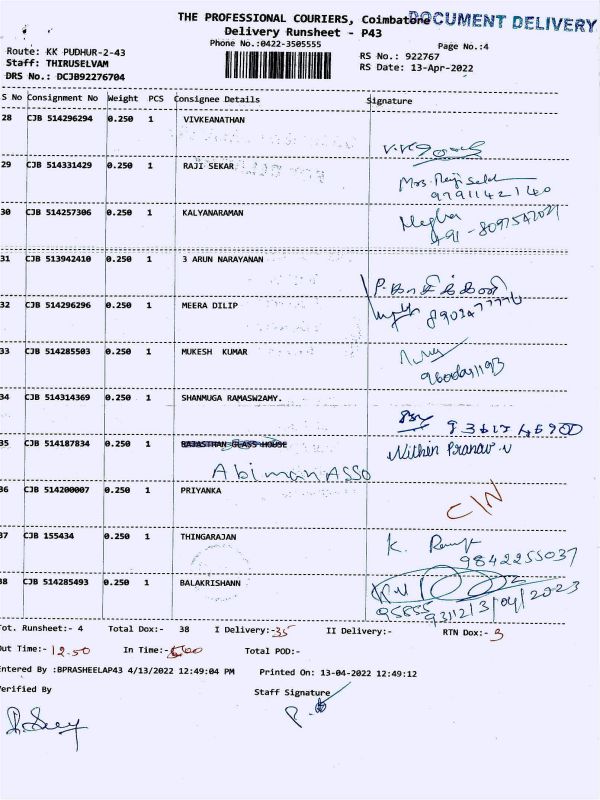 THE PROFESSIONAL COURIERS, Coimbatore
DOCUMENT DELIVERY
Delivery Runsheet - P43
Phone No.:0422-3505555
Page No.:4
Route: KK PUDHUR-2-43
RS No.: 922767
Staff: THIRUSELVAM
RS Date: 13-Apr-2022
DRS No.: DCJB92276704
S No Consignment No Weight PCS Consignee Details Signature
28 CJB 514296294 0.250 1 VIVKEANATHAN
29 CJB 514331429 0.250 1 RAJI SEKAR
Mrs. Raji Sekar
9791142140
30 CJB 514257306 0.250 1 KALYANARAMAN
Megha
31 CJB 513942410 0.250 1 3 ARUN NARAYANAN
32 CJB 514296296 0.250 1 MEERA DILIP
33 CJB 514285503 0.250 1 MUKESH KUMAR
34 CJB 514314369 0.250 1 SHANMUGA RAMASW2AMY.
35 CJB 514187834 0.250 1 RAJASTHAN GLASS HOUSE
Nithin Pranav.v
Abiman ASSO
36 CJB 514200007 0.250 1 PRIYANKA
C/N
37 CJB 155434 0.250 1 THINGARAJAN
K.
9842255037
38 CJB 514285493 0.250 1 BALAKRISHANN
Tot. Runsheet:- 4 Total Dox:- 38 I Delivery:-35 II Delivery:- RTN Dox:- 3
Out Time:- 12.50 In Time:- Total POD:-
Entered By :BPRASHEELAP43 4/13/2022 12:49:04 PM Printed On: 13-04-2022 12:49:12
Verified By Staff Signature